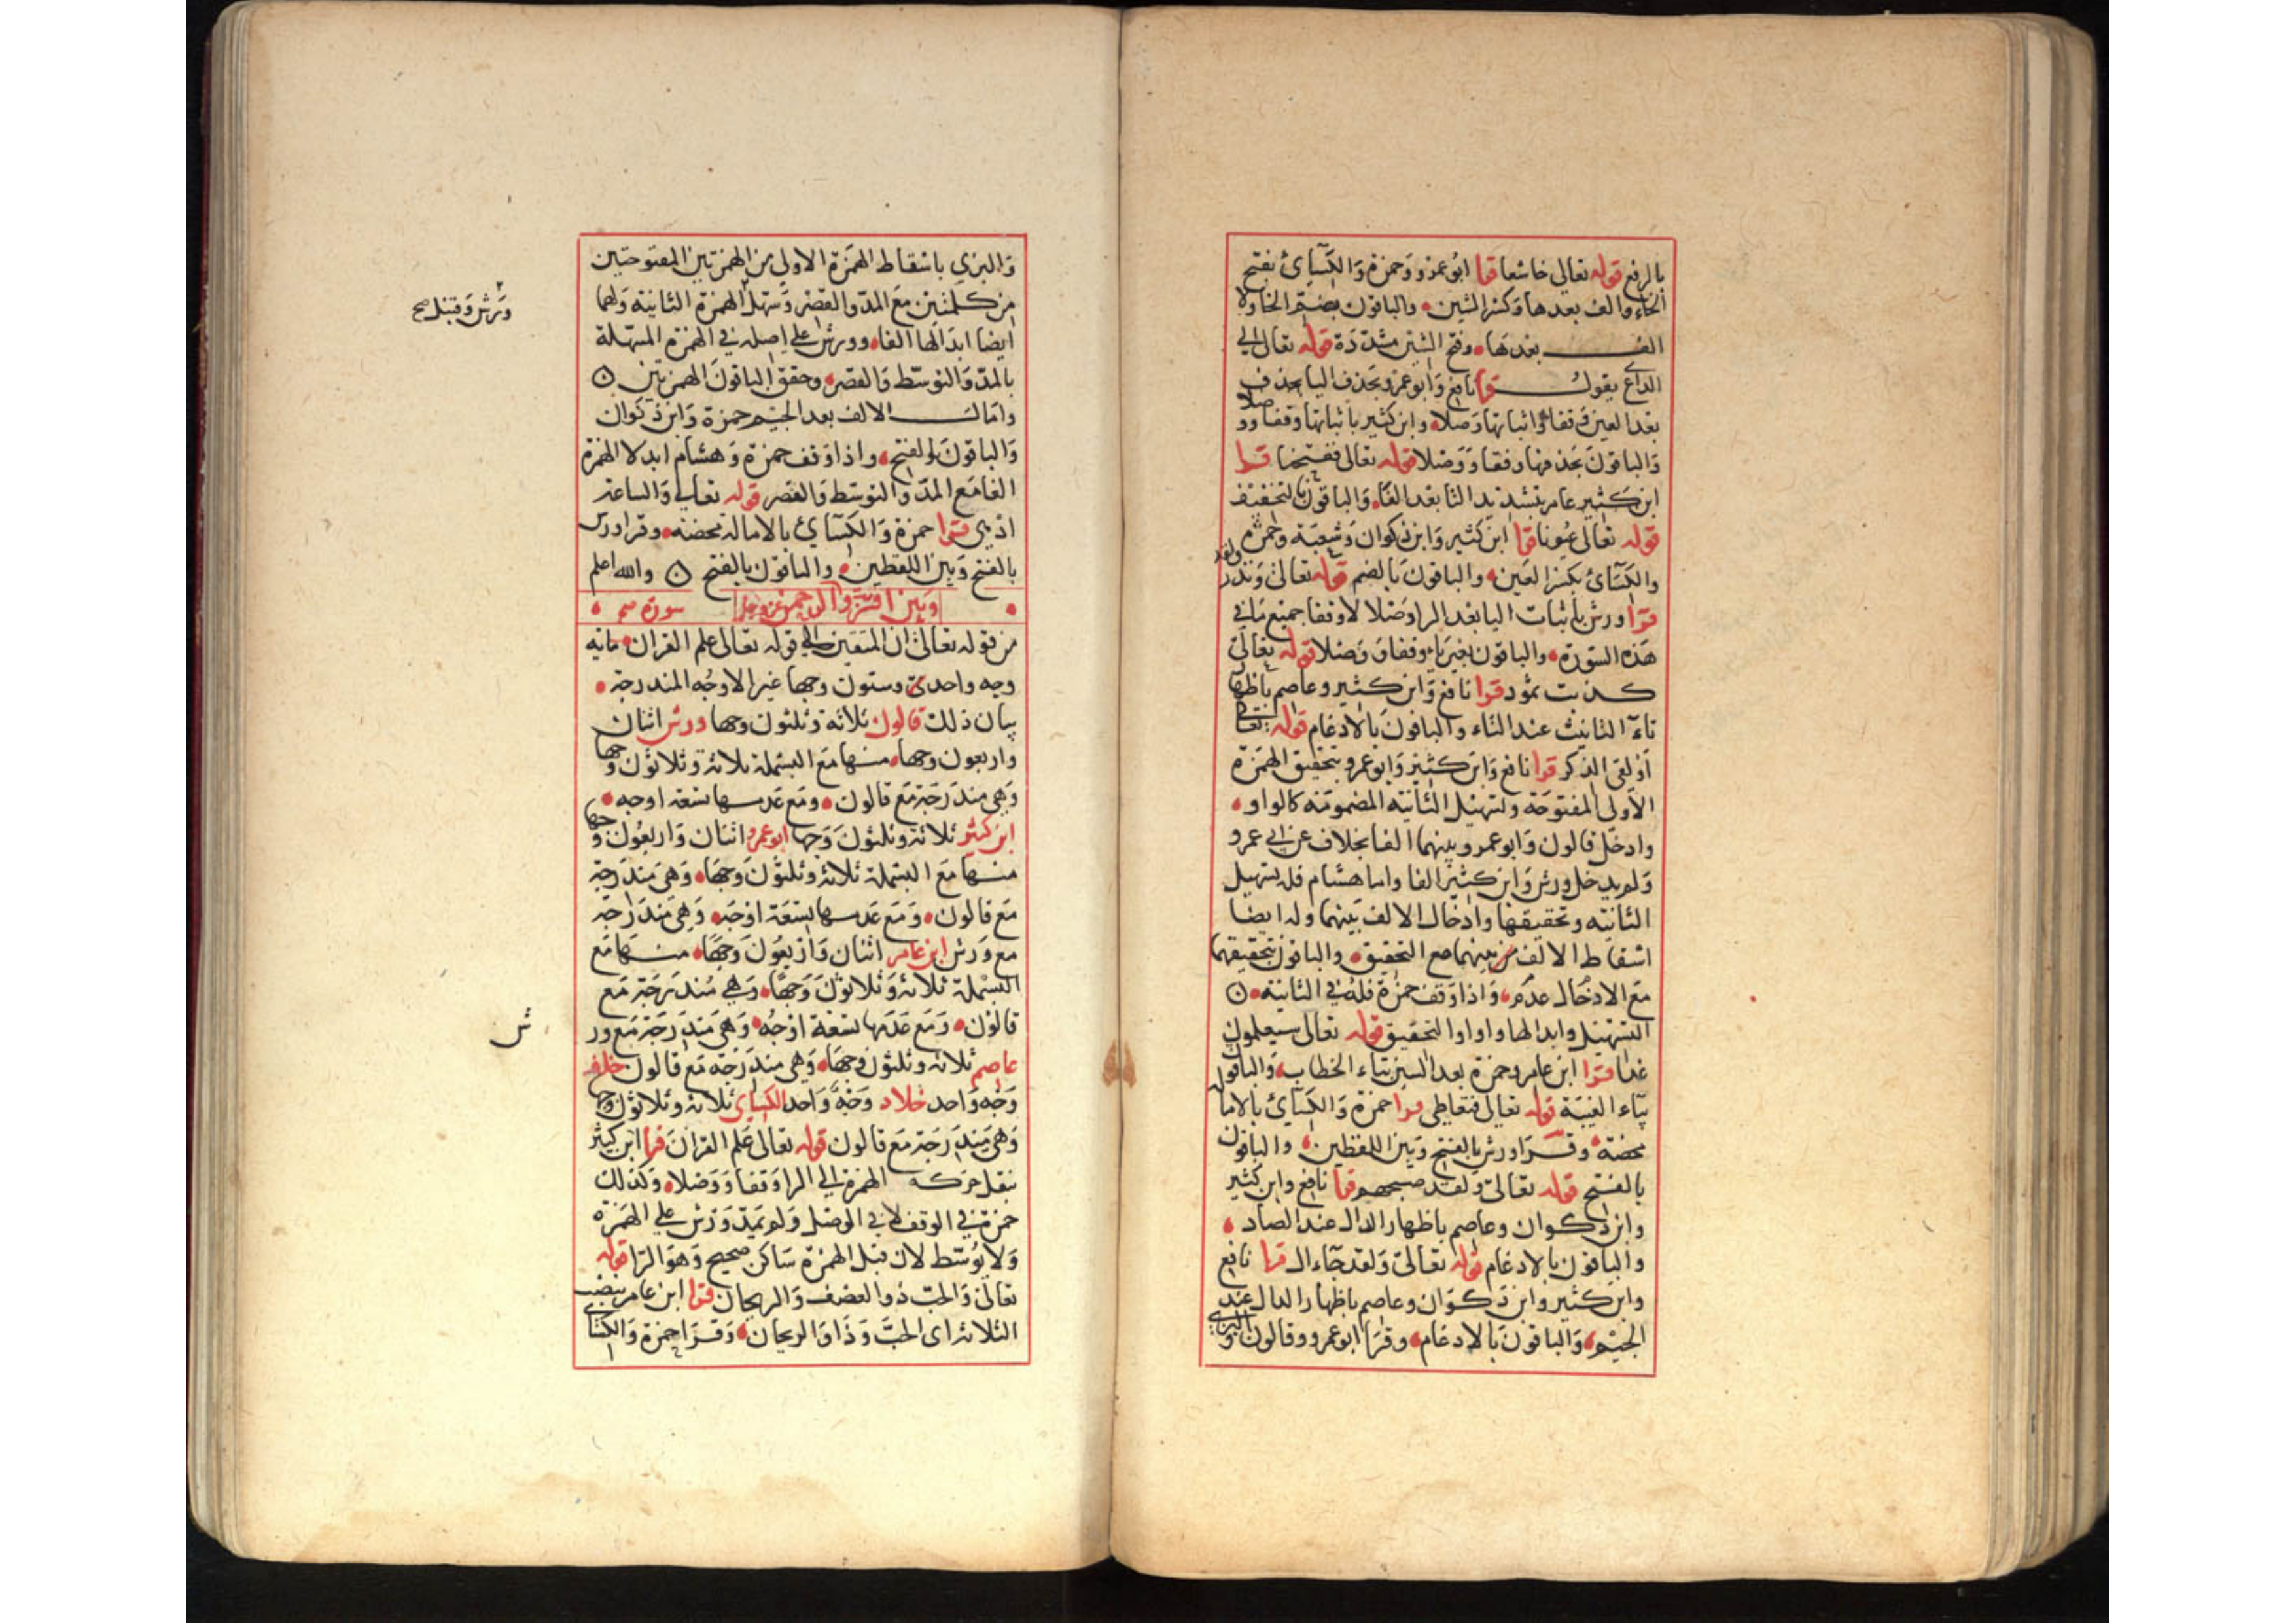 بالرفع قوله تعالى خاشعا قرا ابوعمرو وحمزة والكسائي بفتح
الخاء والف بعدها وكسر الشين والباقون بضم الخا ولا
الف بعدها وفتح الشين مشددة قوله تعالى الى
الداع يقول قرا نافع وابوعمرو بحذف اليا بحذف
بعد العين وقفا واثباتها وصلا وابن كثير باثباتها وقفا ووصلا
والباقون بحذفها وقفا ووصلا قوله تعالى ففتحنا قرا
ابن كثير عامر بتشديد التا بعد الفا والباقون بالتخفيف
قوله تعالى عيونا قرا ابن كثير وابن ذكوان وشعبة وحمزة
والكسائي بكسر العين والباقون بالضم قوله تعالى ونذر ولقد
قرا ورش باثبات اليا بعد الرا وصلا لا وقفا جميع ما في
هذه السورة والباقون بغير ياء وقفا ووصلا قوله تعالى
كذبت ثمود قرا نافع وابن كثير وعاصم باظهار
تاء التانيث عند الثاء والباقون بالادغام قوله تعالى
أؤلقي الذكر قرا نافع وابن كثير وابوعمرو بتحقيق الهمزة
الاولى المفتوحة وتسهيل الثانية المضمومة كالواو
وادخل قالون وابوعمرو بينهما الفا بخلاف عن ابي عمرو
ولم يدخل ورش وابن كثير الفا واما هشام فله تسهيل
الثانية وتحقيقها وادخال الالف بينهما وله ايضا
اسقاط الالف من بينهما مع التحقيق والباقون بتحقيقهما
مع الادخال عدم واذا وقف حمزة فله في الثانية
التسهيل وابدالها واوا والتحقيق قوله تعالى سيعلمون
غدا قرا ابن عامر وحمزة بعد السين بتاء الخطاب والباقون
بياء الغيبة قوله تعالى فتعاطى قرا حمزة والكسائي بالامالة
محضة وقرا ورش بالفتح وبين اللفظين والباقون
بالفتح قوله تعالى ولقد صبحهم قرا نافع وابن كثير
وابن ذكوان وعاصم باظهار الدال عند الصاد
والباقون بالادغام قوله تعالى ولقد جاء ال قرا نافع
وابن كثير وابن ذكوان وعاصم باظهار الدال عند
الجيم والباقون بالادغام وقرا ابوعمرو وقالون و البزي
والبزي باسقاط الهمزة الاولى من الهمزتين المفتوحتين
من كلمتين مع المد والقصر وسهل الهمزة الثانية ولهما
ورش وقنبل صح
ايضا ابدالها الفا وورش على اصله في الهمزة المسهلة
بالمد والتوسط والقصر وحقق الباقون الهمزتين
وامال الالف بعد الجيم حمزة وابن ذكوان
والباقون بالفتح واذا وقف حمزة وهشام ابدلا الهمزة
الفا مع المد والتوسط والقصر قوله تعالى والساعة
ادهى قرا حمزة والكسائي بالامالة محضة وقرا ورش
بالفتح وبين اللفظين والباقون بالفتح والله اعلم
وبين اقتربت والرحمن عز وجل سورة
من قوله تعالى ان المتقين الى قوله تعالى علم القران مائة
وجه واحدى وستون وجها غير الاوجه المندرجة
بيان ذلك قالون ثلاثة وثلثون وجها ورش اثنان
واربعون وجها منها مع البسملة ثلاثة وثلاثون وجها
وهي مندرجة مع قالون ومع عدمها تسعة اوجه
ابن كثير ثلاثة وثلثون وجها ابوعمرو اثنان واربعون وجها
منها مع البسملة ثلاثة وثلثون وجها وهي مندرجة
مع قالون ومع عدمها تسعة اوجه وهي مندرجة
مع ورش ابن عامر اثنان واربعون وجها منها مع
البسملة ثلاثة وثلاثون وجها وهي مندرجة مع
قالون ومع عدمها تسعة اوجه وهي مندرجة مع ور
ش
عاصم ثلاثة وثلثون وجها وهي مندرجة مع قالون خلف
وجه واحد خلاد وجه واحد الكسائي ثلاثة وثلاثون وجها
وهي مندرجة مع قالون قوله تعالى علم القران قرا ابن كثير
بنقل حركة الهمزة الى الرا وقفا ووصلا وكذلك
حمزة في الوقف لا في الوصل ولم يمد ورش على الهمزة
ولا يوسط لان قبل الهمزة ساكن صحيح وهو الرا قوله
تعالى والحب ذو العصف والريحان قرا ابن عامر بنصب
الثلاثة اى الحب وذا والريحان وقرا حمزة والكسائي